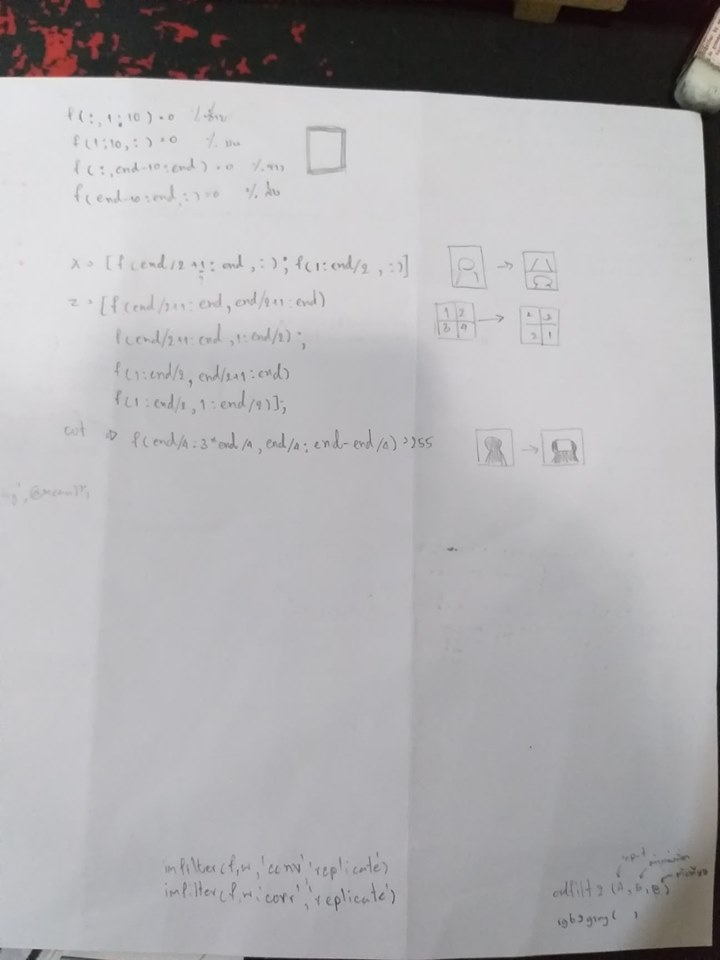 f(:,1:10)=0 %ซ้าย
f(1:10,:)=0 % บน
f(:,end-10:end)=0 %ขวา
f(end-10:end,:)=0 % ล่าง
x = [f(end/2+1: end,:); f(1:end/2,:)]
z = [f(end/2+1:end, end/2+1:end)
1 2
3 4
4 3
2 1
f(end/2+1:end,1:end/2);
f(1:end/2, end/2+1:end)
f(1:end/2,1:end/2)];
cut ⇒ f(end/4:3*end/4, end/4: end-end/4)=255
',@mean));
imfilter(f,w,'conv','replicate')
imfilter(f,w,'corr','replicate')
input
ordfilt2 (A,B,
rgb2gray( )